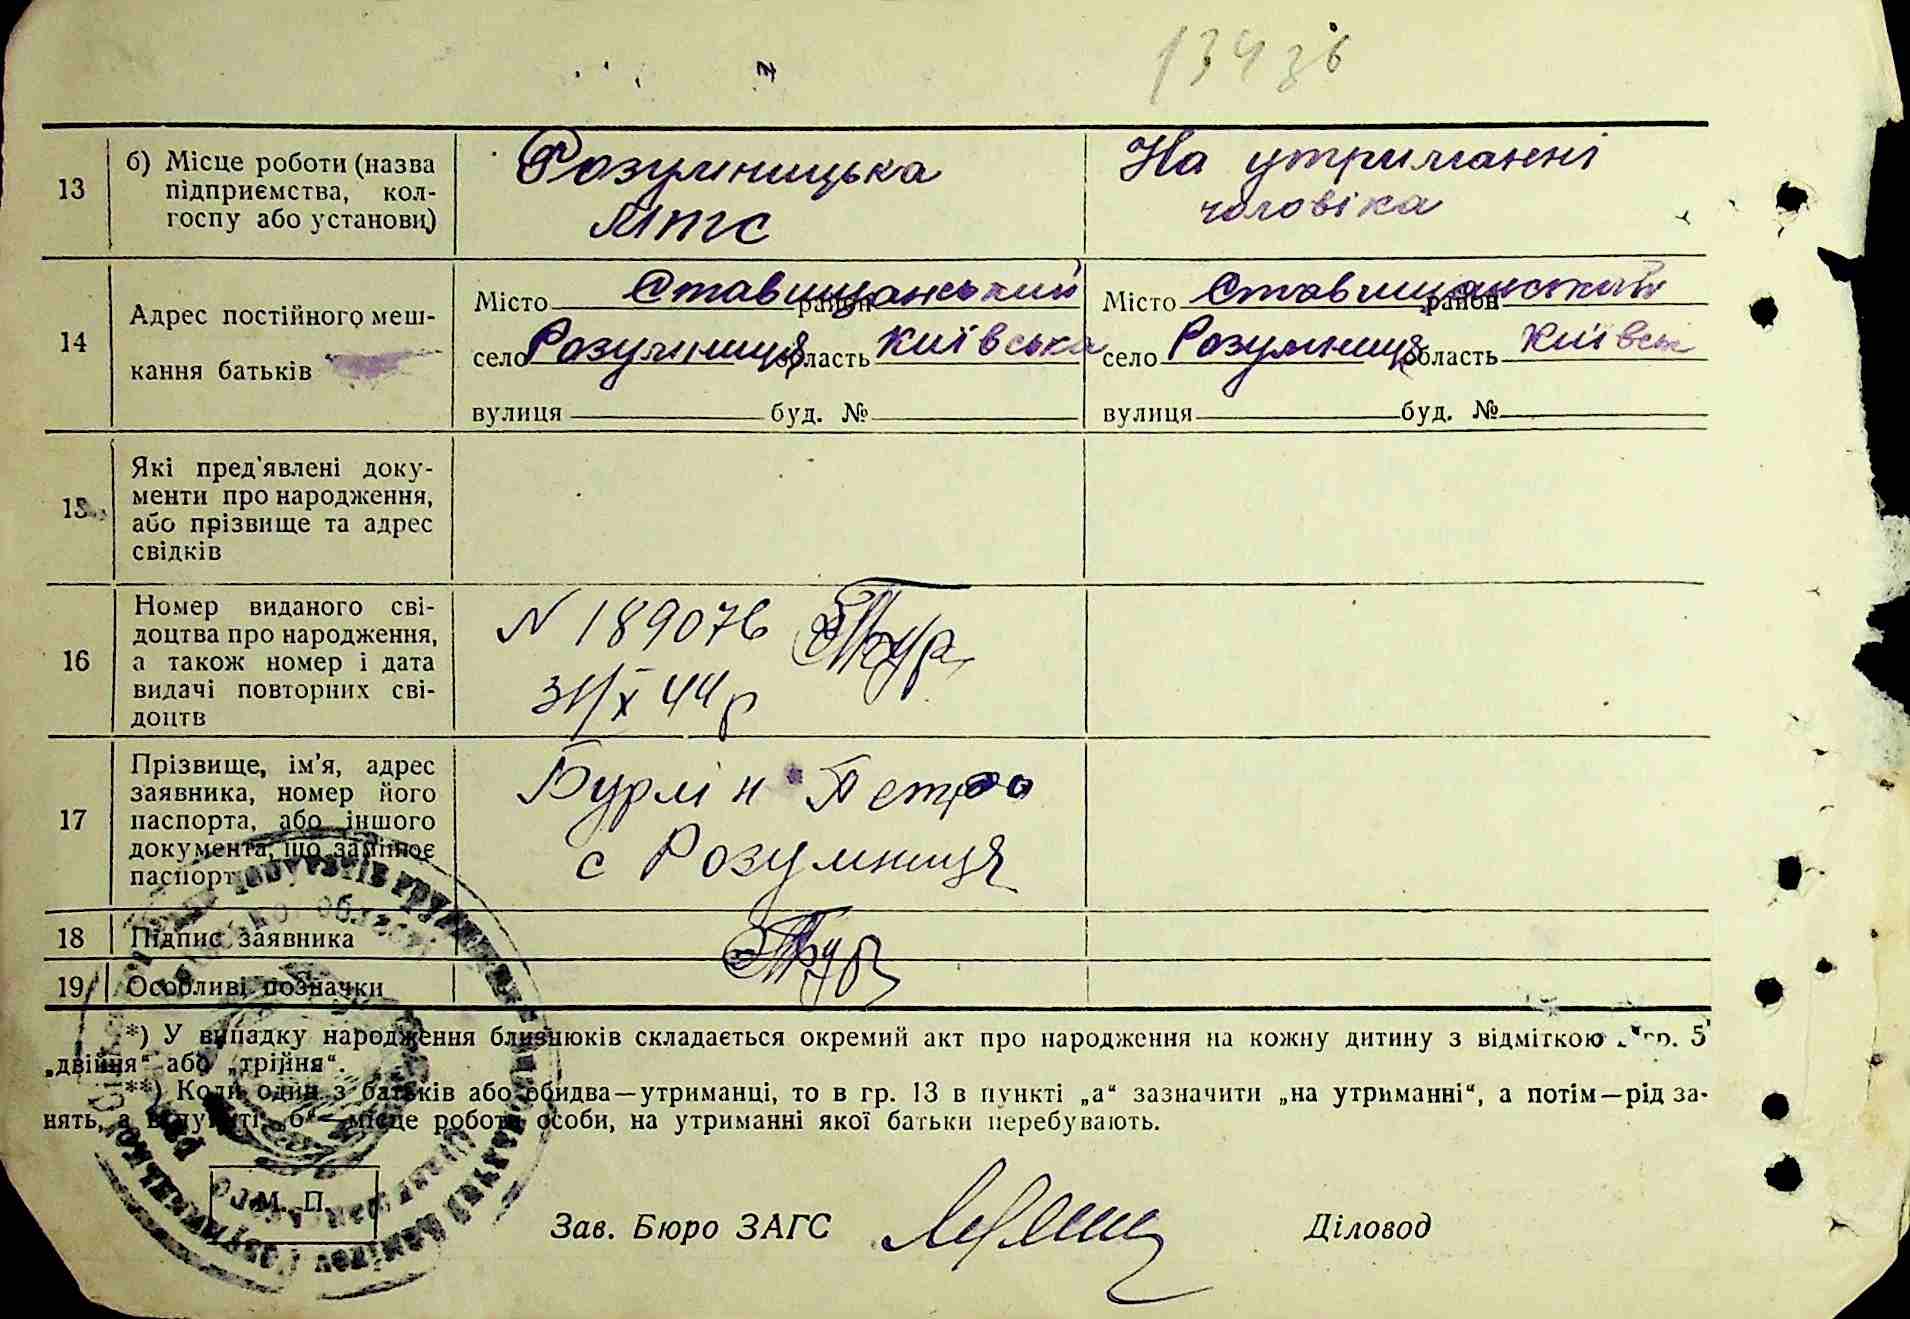 134 зв
13
б) Місце роботи (назва
підприємства, кол-
госпу або установи)
Розумницька
МТС
На утриманні
чоловіка
14
Адрес постійного меш-
кання батьків
Місто Ставищанський район
село Розумниця область Київська
вулиця буд. №
Місто Ставищанський район
село Розумниця область Київськ
вулиця буд. №
15
Які пред'явлені доку-
менти про народження,
або прізвище та адрес
свідків
16
Номер виданого сві-
доцтва про народження,
а також номер і дата
видачі повторних сві-
доцтв
N 189076
31/X 44 р
17
Прізвище, ім'я, адрес
заявника, номер його
паспорта, або іншого
документа, що замінює
паспорт
Бурлін Петро
с Розумниця
18
Підпис заявника
19
Особливі позначки
*) У випадку народження близнюків складається окремий акт про народження на кожну дитину з відміткою гр. 5
„двійня“ або „трійня“.
**) Коли один з батьків або обидва—утриманці, то в гр. 13 в пункті „а“ зазначити „на утриманні“, а потім—рід за-
нять, а в пункті „б“—місце роботи особи, на утриманні якої батьки перебувають.
М. П.
Зав. Бюро ЗАГС
Діловод